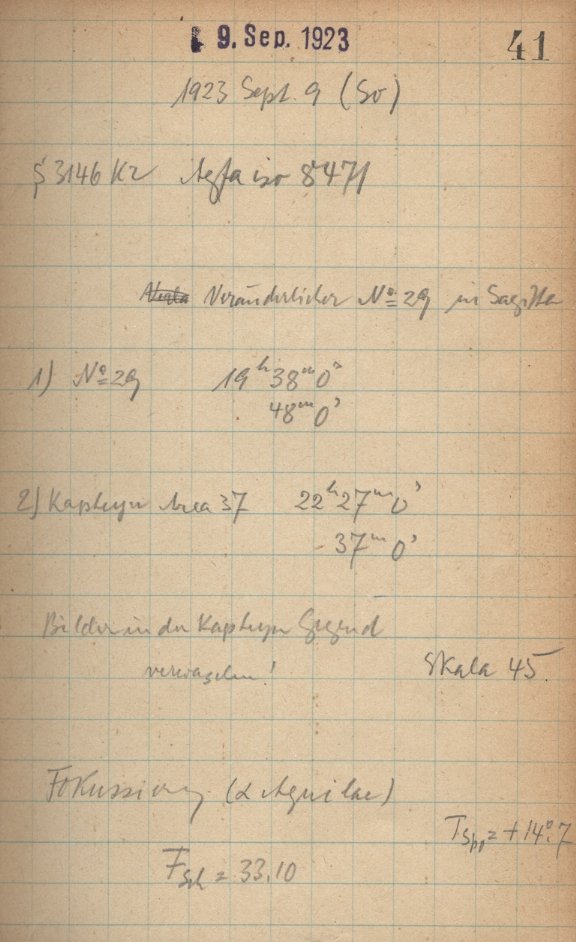 9. Sep. 1923
41
1923 Sept. 9 (So)
S 3146 Kz Agfa iso 8471
Veränderlicher No 29 in Sagitta
1) No 29 19h 38m 0s
48m 0s
2) Kapteyn Area 37 22h 27m 0s
37m 0s
Bilder in der Kapteyn Gegend
verwaschen!
Skala 45
Fokussierung (α Aquilae)
TSp = +14°.7
FSch = 33.10